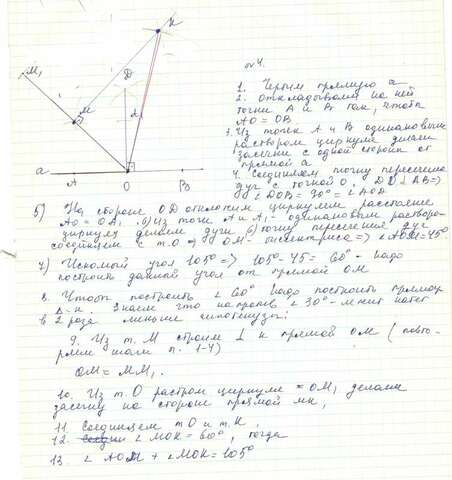 К
M₁
D
M
A₁
a
A
O
B
№ 4.
1. Чертим прямую a
2. Откладываем на ней
точки A и B так, чтобы
AO = OB.
3. Из точек A и B одинаковым
раствором циркуля делаем
засечки с одной стороны от
прямой a
4. Соединяем точку пересечения
дуг с точкой O, DO ⊥ AB =>
∠DOB = 90° = ∠AOD
5) На стороне OD отложим циркулем расстояние
AO = OA₁. 6) Из точек A и A₁ - одинаковым раствором
циркуля делаем дуги 6) точку пересечения дуг
соединяем с т.O => OM - биссектриса => ∠AOM = 45°
7) Искомый угол 105° => 105° - 45 = 60° - надо
построить данный угол от прямой OM
8. Чтобы построить ∠60° надо построить прямоуг
Δ-к. Знаем что напротив ∠30° лежит катет
в 2 раза меньше гипотенузы:
9. Из т. M строим ⊥ к прямой OM (повто-
ряем шаги п. 1-4)
OM = MM₁.
10. Из т. O раствором циркуля = OM₁ делаем
засечку на стороне прямой MK,
11. Соединяем т O и т. K,
12. ∠MOK = 60°, тогда
13 ∠AOM + ∠MOK = 105°